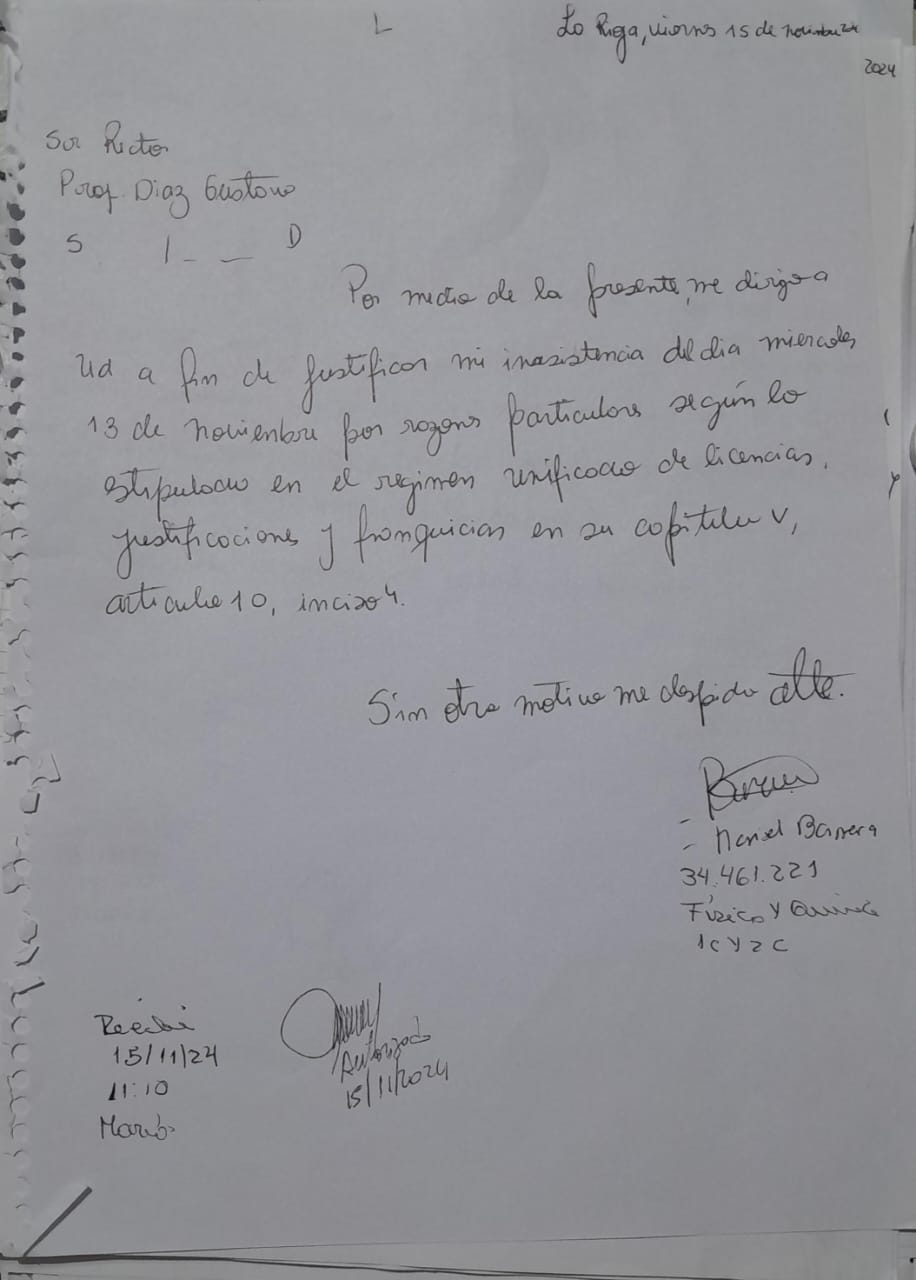 L
La Rioja, viernes 15 de noviembre
2024
Sor Rector
Prof. Diaz Gustavo
S / _ _ D
Por medio de la presente, me dirijo a
Ud a fin de justificar mi inasistencia del dia miercoles
13 de noviembre por razones particulares según lo
estipulado en el regimen unificado de licencias,
justificaciones y franquicias en su capitulo V,
articulo 10, inciso 4.
Sin otro motivo me despido atte.
- Barrera
34.461.221
Física y Quimica
1C y 2C
Recibi
15/11/24
11:10
Autorizado
15/11/2024